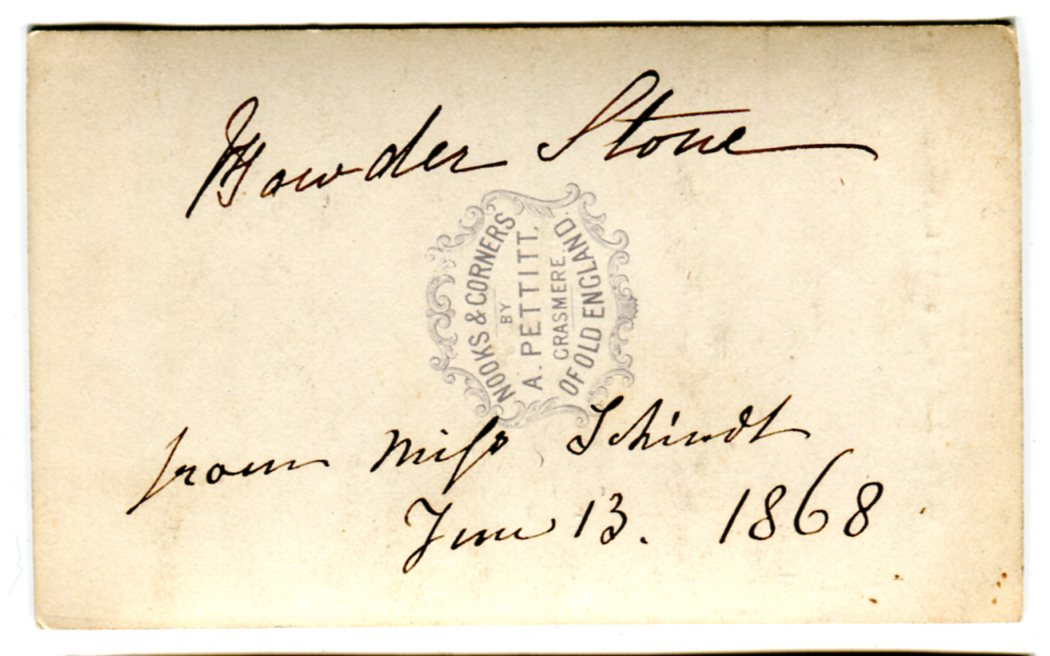 Bowder Stone
NOOKS & CORNERS
BY
A. PETTITT,
GRASMERE.
OF OLD ENGLAND.
from Miss Schindt
June 13. 1868